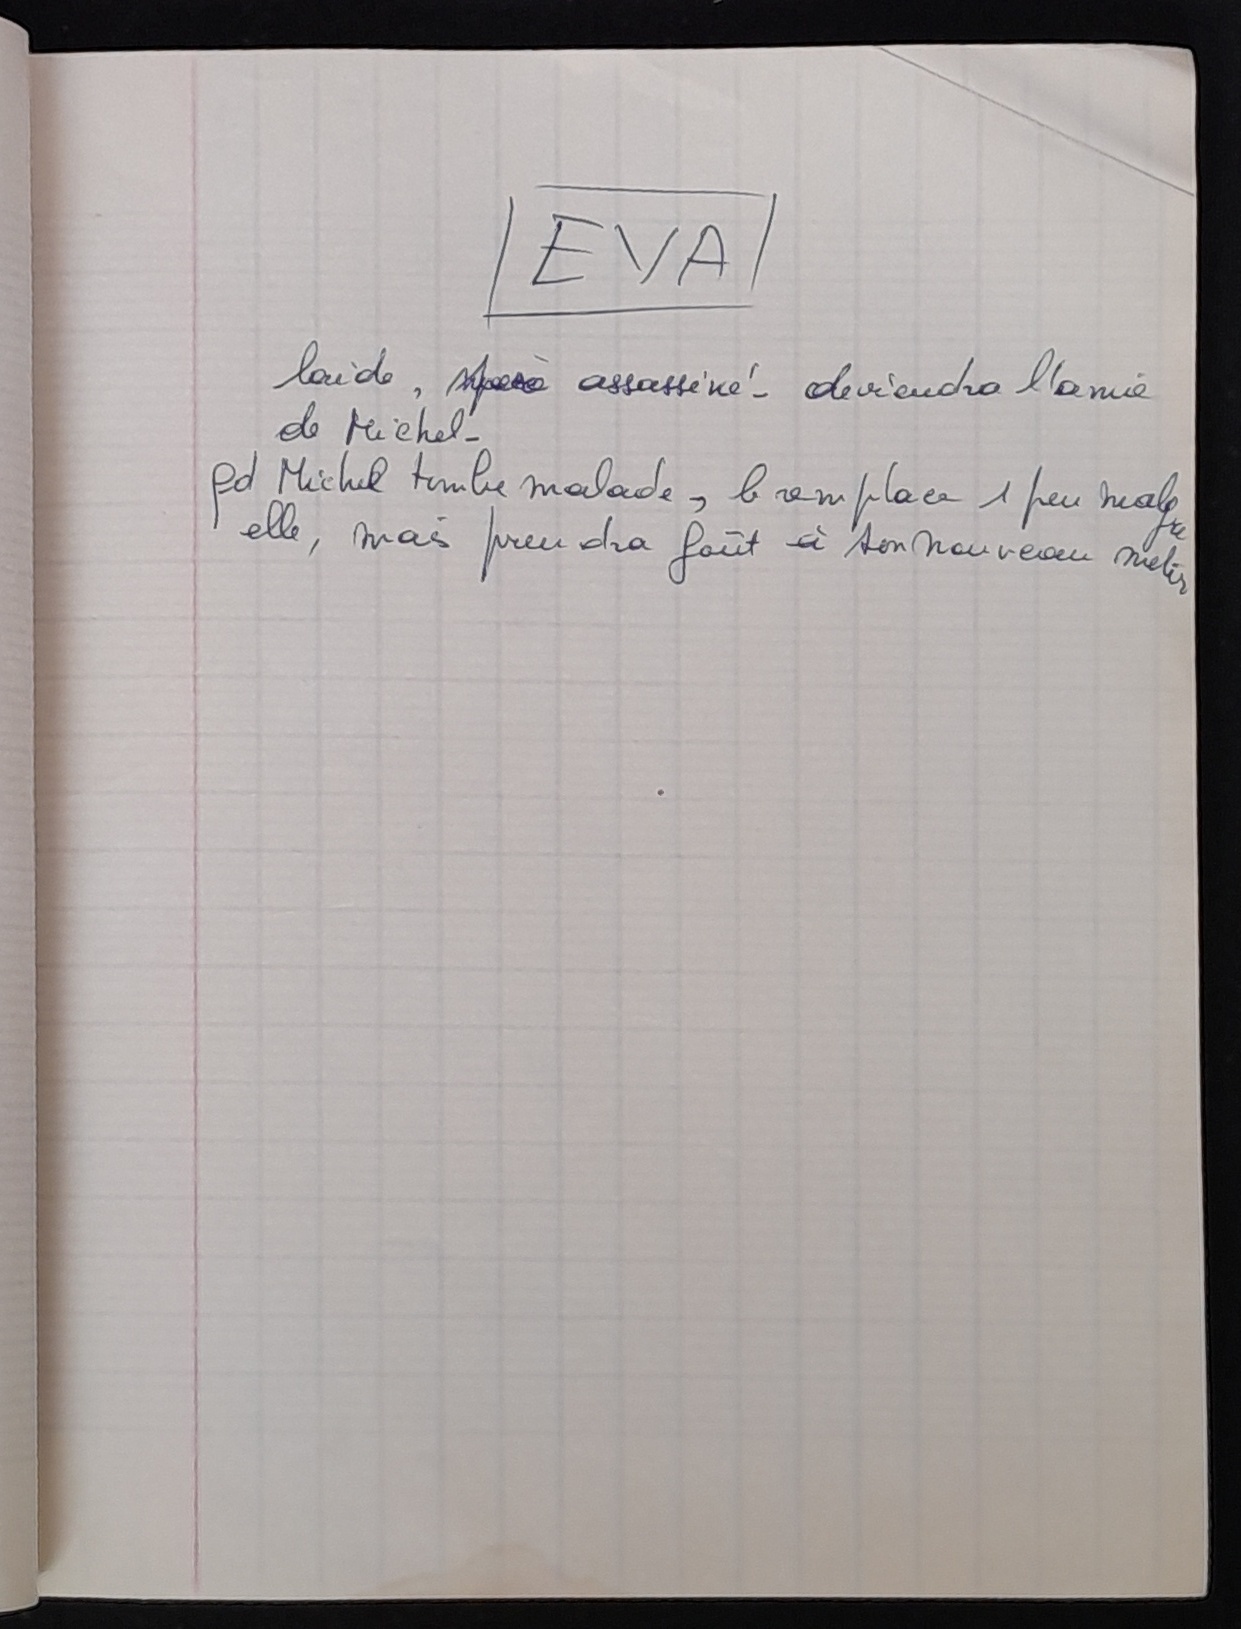 EVA
laide, père assassiné - deviendra l'amie
de Michel -
qd Michel tombe malade, le remplace 1 peu malgré
elle, mais prendra goût à son nouveau métier